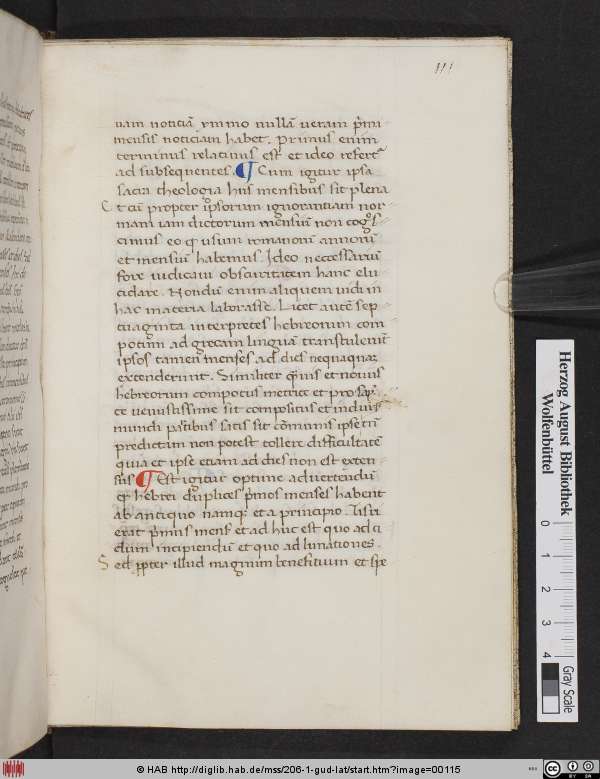 111
nam noticiā ymmo nullā ueram p̄mi
mensis noticiam habet. Primus enim
terminus relatiuus est et ideo refert᷑
ad subsequentes. ¶ Cum igitur ipsa
sacra theologia hiis mensibus sit plena
Et cū propter ip̄sorum ignorantiam nor
mam iam dictorum mensiū non cog̊s
cimus eo ꝙ usum romanorū annorū
et mensiū habemus. Ideo necessariū
fore iudicaui obscuritatem hanc elu
cidare. Nondū enim aliquem uidi in
hac materia laborasse. Licet autē sep
tuaginta interpretes hebreorum com
potum ad grecam linguā transtulerūt
ipsos tamen menses ad dies nequaquaꝫ
extenderunt. Similiter q̄uis et nouus
hebreorum compotus metrice et
ce uenustissime sit compositus et
mundi partibus satis sit cōmunis ipse tn̄
predictam non potest tollere difficultatē
quia et ipse etiam ad dies non est exten
sus ¶ Est igitur optime aduertendū
ꝙ hebrei duplices p̄mos menses habent
ab antiquo namqꝫ et a principio.
erat p̄mus mens̄ et ad huc est quo ad
dum incipiendū et quo ad lunationes.
Sed ꝓpter illud magnum benefitium et spe
Herzog August Bibliothek
Wolfenbüttel
0 1 2 3 4
Gray Scale
© HAB http://diglib.hab.de/mss/206-1-gud-lat/start.htm?image=00115
cc BY SA